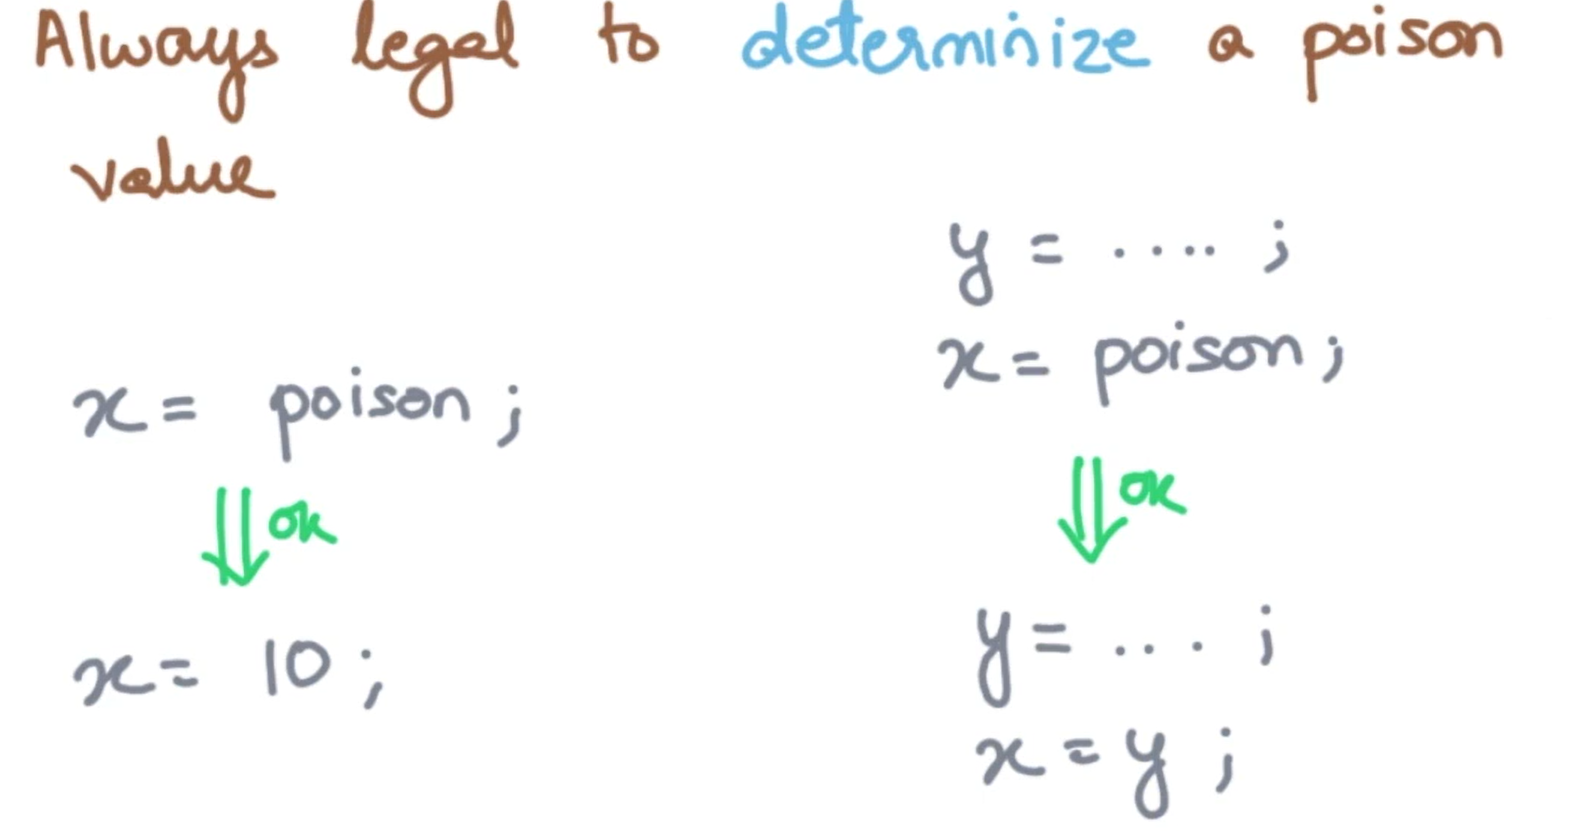 Always legal to determinize a poison
value
x = poison ;
ok
x = 10 ;
y = .... ;
x = poison ;
ok
y = ... ;
x = y ;